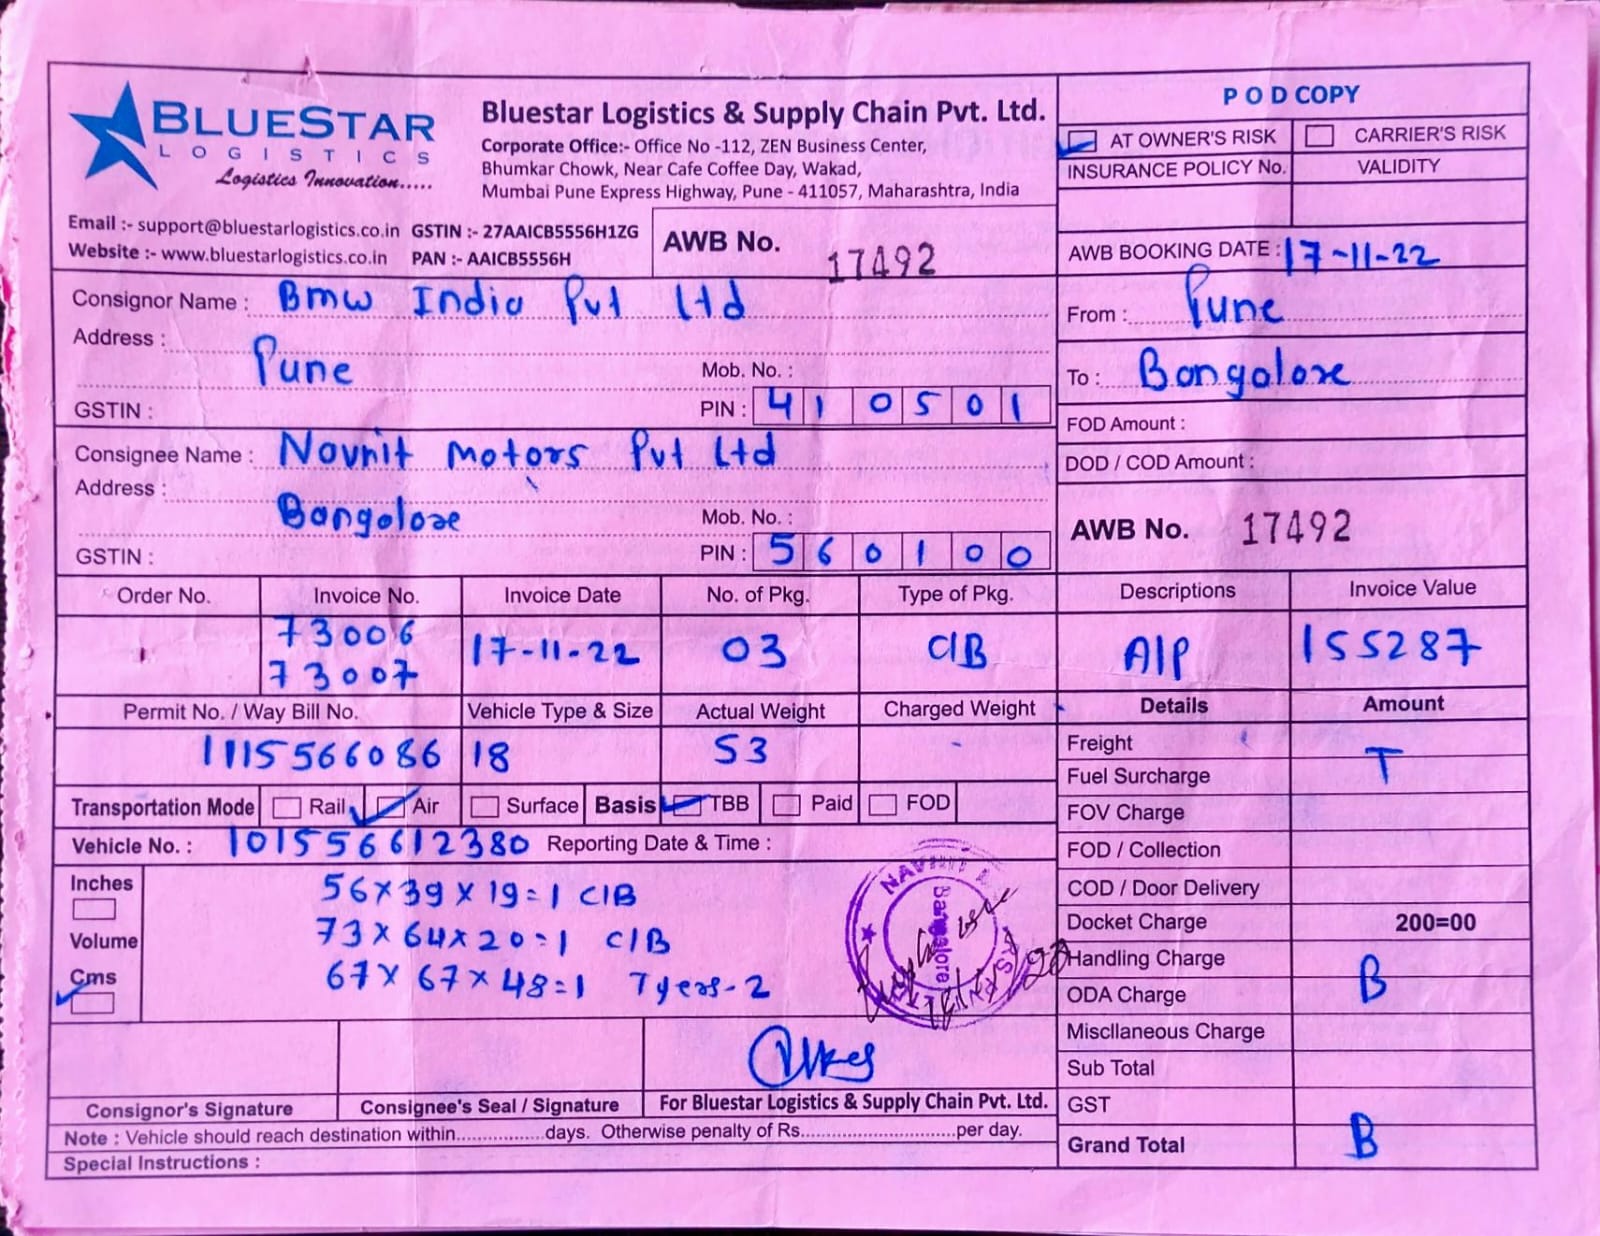 BLUESTAR
LOGISTICS
Logistics Innovation.....
Bluestar Logistics & Supply Chain Pvt. Ltd.
Corporate Office:- Office No -112, ZEN Business Center,
Bhumkar Chowk, Near Cafe Coffee Day, Wakad,
Mumbai Pune Express Highway, Pune - 411057, Maharashtra, India
Email :- support@bluestarlogistics.co.in GSTIN :- 27AAICB5556H1ZG
Website :- www.bluestarlogistics.co.in PAN :- AAICB5556H
AWB No. 17492
POD COPY
AT OWNER'S RISK CARRIER'S RISK
INSURANCE POLICY No. VALIDITY
AWB BOOKING DATE : 17-11-22
From : Pune
To : Bangalore
FOD Amount :
DOD / COD Amount :
AWB No. 17492
Consignor Name : Bmw India Pvt Ltd
Address :
Pune Mob. No. :
GSTIN : PIN : 410501
Consignee Name : Navnit Motors Pvt Ltd
Address :
Bangalore Mob. No. :
GSTIN : PIN : 560100
Order No. Invoice No. Invoice Date No. of Pkg. Type of Pkg. Descriptions Invoice Value
73006
73007 17-11-22 03 C/B A/P 155287
Permit No. / Way Bill No. Vehicle Type & Size Actual Weight Charged Weight
1115566086 18 53 -
Transportation Mode Rail Air Surface Basis TBB Paid FOD
Vehicle No. : 101556612380 Reporting Date & Time :
Inches
Volume
Cms
56x39x19=1 C/B
73x64x20=1 C/B
67x67x48=1 Tyers-2
NAVNIT
Bangalore
Details Amount
Freight
T
Fuel Surcharge
FOV Charge
FOD / Collection
COD / Door Delivery
Docket Charge 200=00
Handling Charge
B
ODA Charge
Miscllaneous Charge
Sub Total
GST
Grand Total B
Consignor's Signature Consignee's Seal / Signature For Bluestar Logistics & Supply Chain Pvt. Ltd.
Note : Vehicle should reach destination within.................days. Otherwise penalty of Rs.............................per day.
Special Instructions :